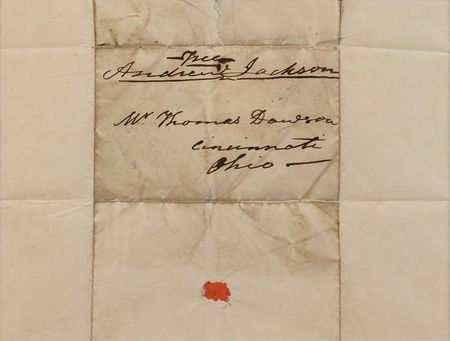 Free
Andrew Jackson
Mr Thomas Dawson
Cincinnati
Ohio —